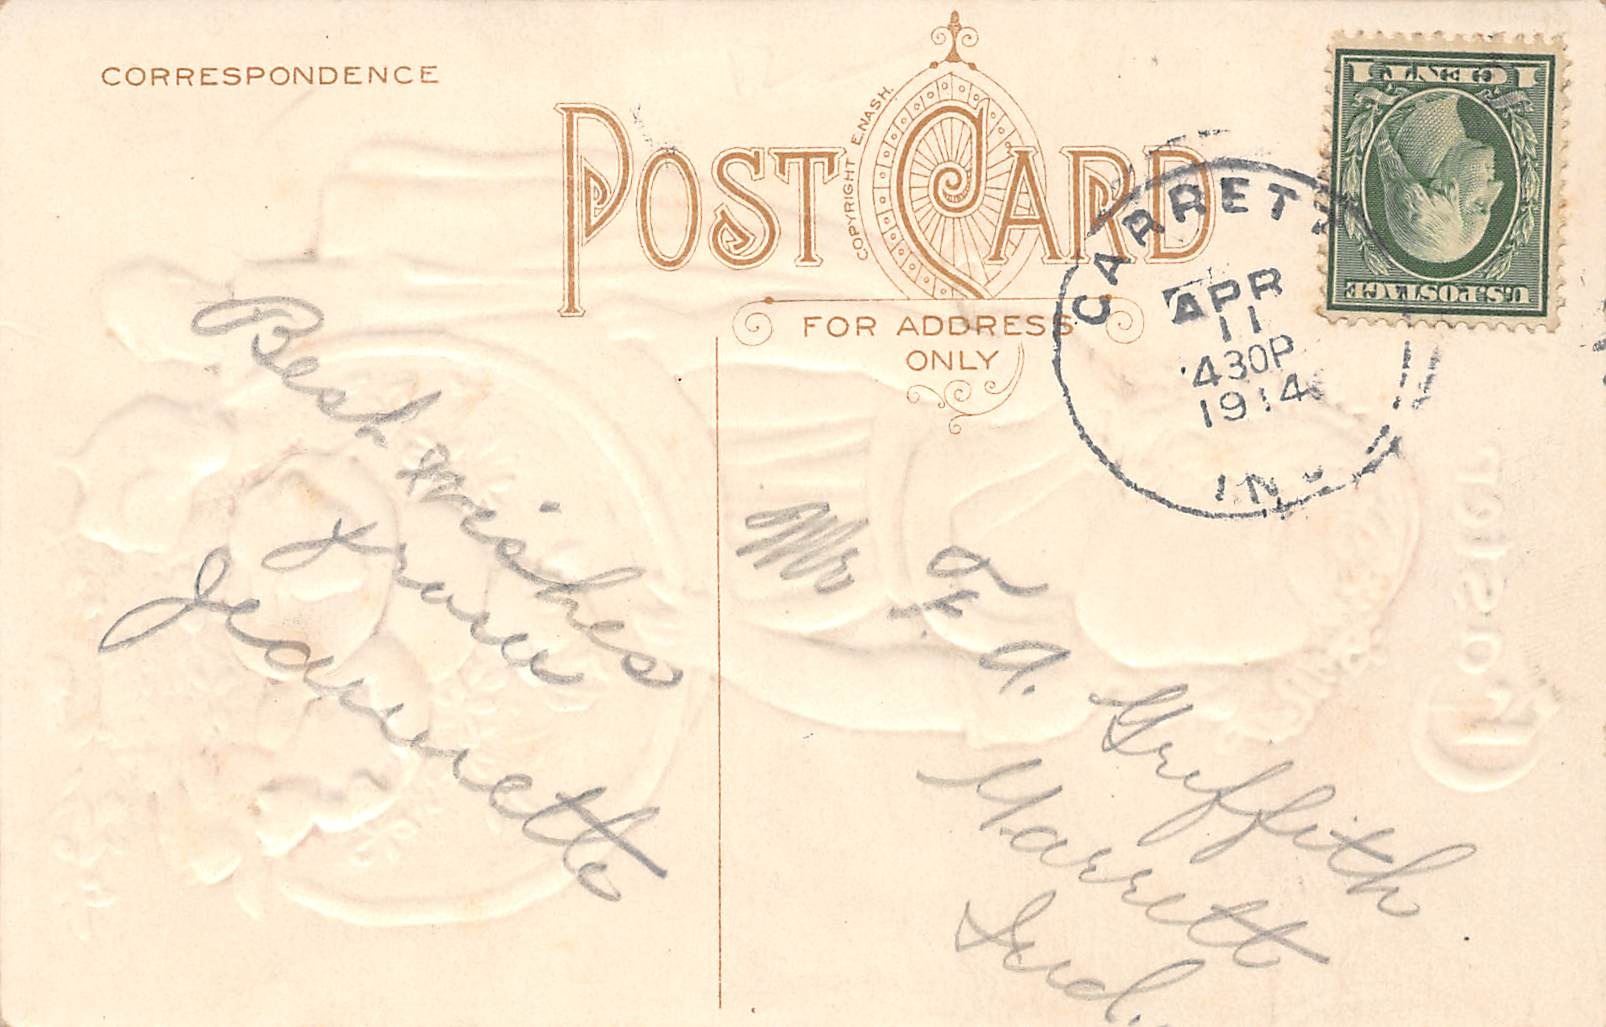 CORRESPONDENCE
POST CARD
COPYRIGHT E. NASH.
FOR ADDRESS
ONLY
GARRETT
APR
11
430P
1914
IND
1 CENT 1
U.S. POSTAGE
Best wishes
from
Jeannette
Mr
F. A. Griffith
Garrett
Ind.